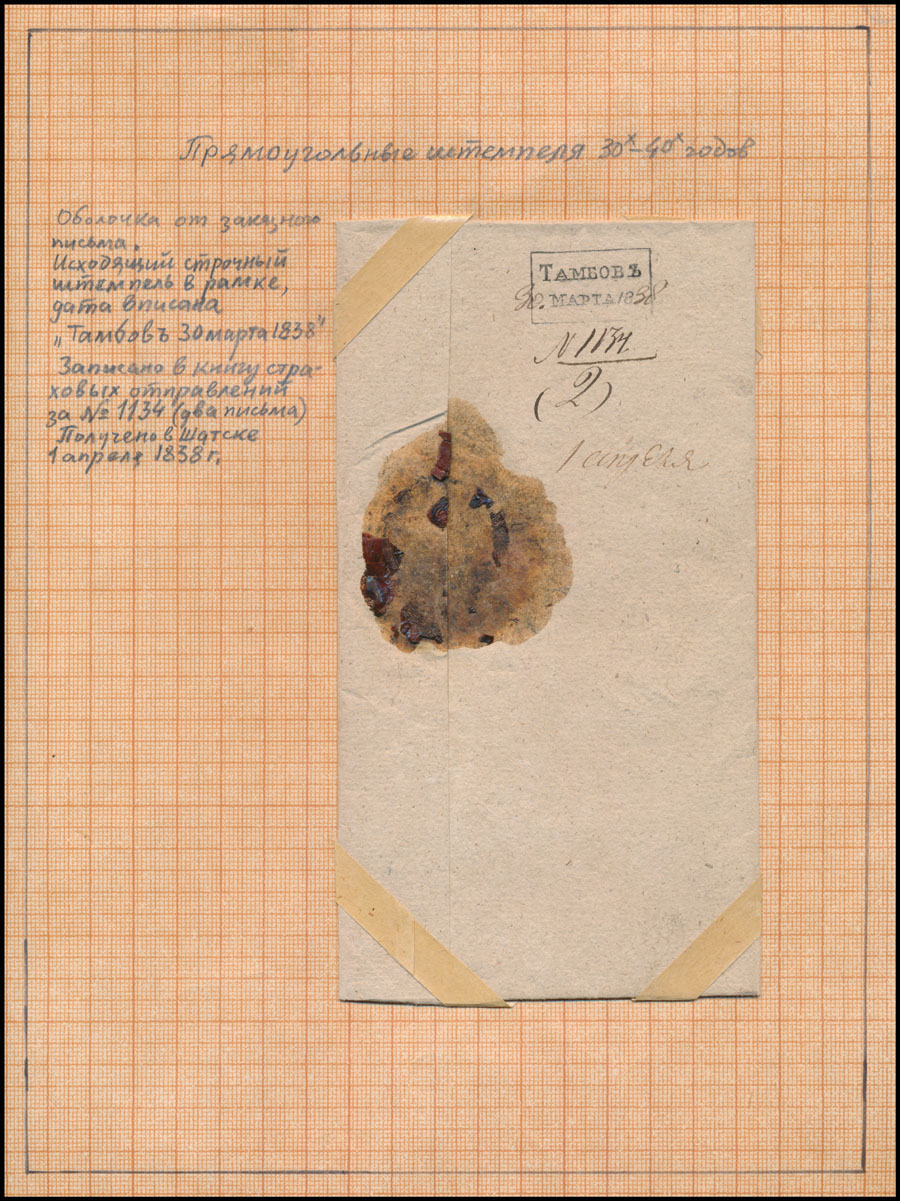 Прямоугольные штемпеля 30х–40х годов
Оболочка от заказного
письма.
Исходящий строчный
штемпель в рамке,
дата вписана
„Тамбовъ 30 марта 1838"
Записано в книгу стра-
ховых отправлений
за № 1134 (два письма)
Получено в Шатске
1 апреля 1838 г.
ТАМБОВЪ
30. МАРТА 1838
N 1134.
(2)
1 апреля